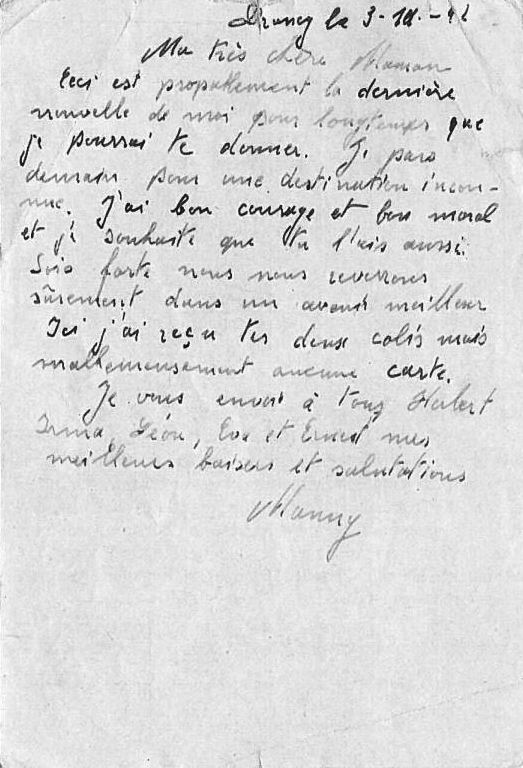 Drancy le 3-III.-42
Ma très chère Maman
Ceci est propablement la dernière
nouvelle de moi pour longtemps que
je pourrai te donner. Je pars
demain pour une destination incon-
nue. J'ai bon courage et bon moral
et je souhaite que tu l'ais aussi.
Sois forte nous nous reverrons
sûrement dans un avenir meilleur
Ici j'ai reçu tes deux colis mais
malheureusement aucune carte.
Je vous envoi à tous Herbert
Irma, Léon, Eva et Ernest mes
meilleurs baisers et salutations
Manny